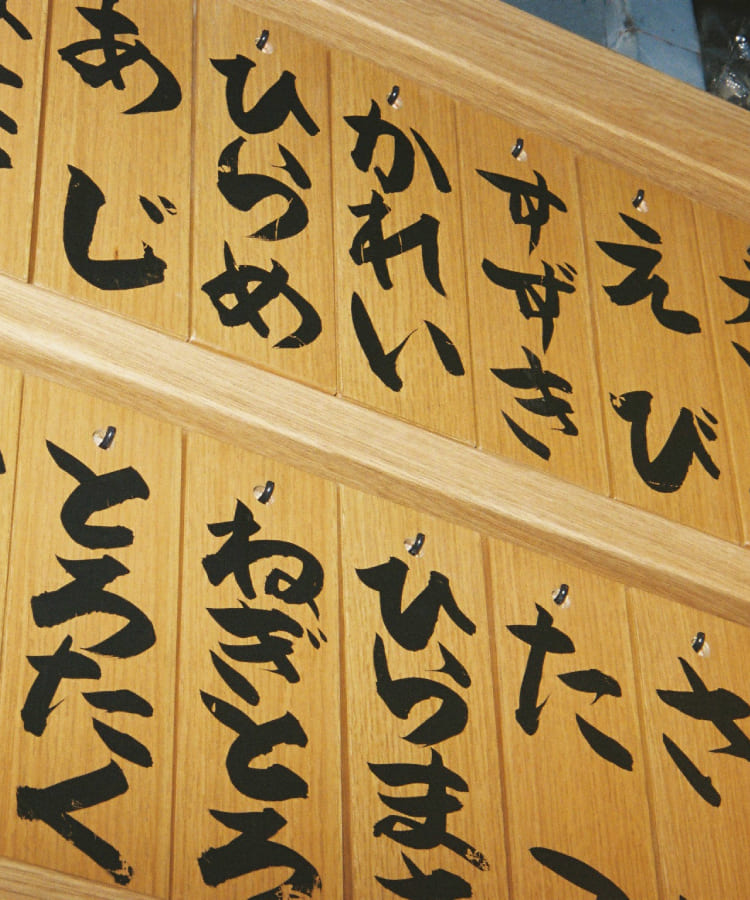 えび
すずき
かれい
ひらめ
あじ
さ
た
ひらま
ねぎとろ
とろたく